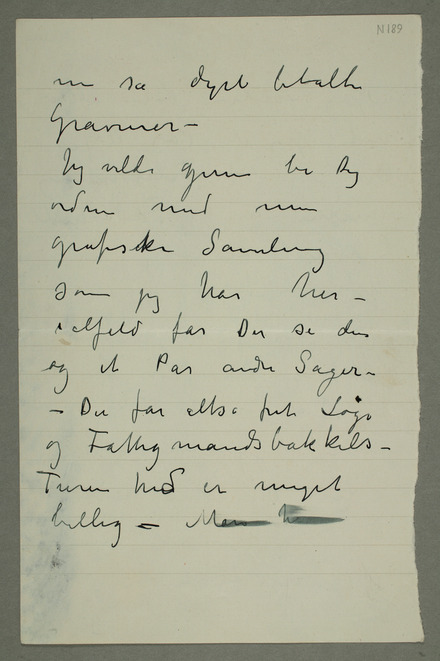 N189
nu så dyrt betalte
Gravurer –
Jeg vilde gjerne be Dig
ordne med min
grafiske Samling
som jeg har her –
ialfald får Du se den
og et Par andre Sager –
– Du får altså frit Logi
og Fattigmandsbakkels –
Turen hid er meget
billig – Men